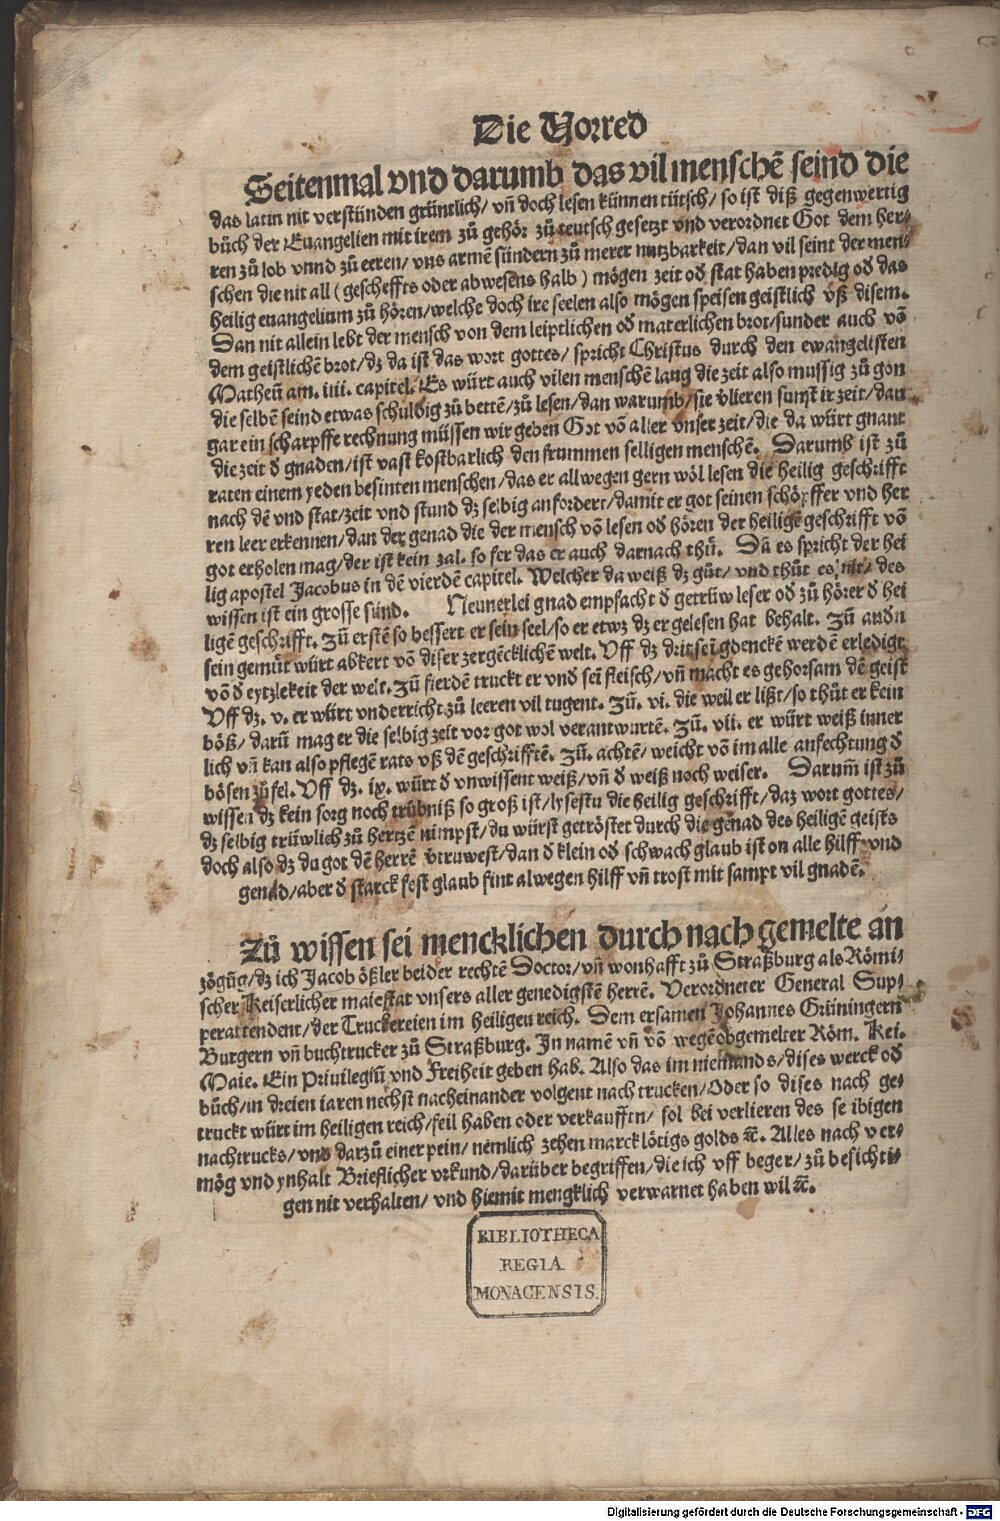 Die Vorred
Seitenmal vnd darumb das vil menschẽ seind die
das latin nit verstünden grüntlich/ vñ doch lesen künnen tütsch/ so ist diß gegenwertig
bůch der Euangelien mit irem zů gehör zů teutsch gesetzt vnd verordnet Got dem her/
ren zů lob vnnd zů eeren/ vns armẽ sündern zů merer nutzbarkeit/ dan vil seint der men/
schen die nit all ( gescheffts oder abwesens halb ) mögen zeit oď stat haben predig oď das
heilig euangelium zů hören/ welche doch ire seelen also mögen speisen geistlich vß disem.
Dan nit allein lebt der mensch von dem leiptlichen oď materlichen brot/ sunder auch võ
dem geistlichẽ brot/ dz da ist das wort gottes/ spricht Christus durch den ewangelisten
Matheũ am. iiii. capitel. Es würt auch vilen menschẽ lang die zeit also mussig zů gon
die selbẽ seind etwas schuldig zů bettẽ/ zů lesen/ dan warumb/ sie v̓lieren sunst ir zeit/ dan
gar ein scharpffe rechnung müssen wir geben Got võ aller vnser zeit/ die da würt gnant
die zeit ď gnaden/ ist vast kostbarlich den frummen selligen menschẽ. Darumb ist zů
raten einem yeden besinten menschen/ das er allwegen gern wöl lesen die heilig geschrifft
nach dẽ vnd stat/ zeit vnd stund dz selbig anfordert/ damit er got seinen schöpffer vnd her
ren leer erkennen/ dan der genad die der mensch võ lesen oď hören der heiligẽ geschrifft võ
got erholen mag/ der ist kein zal. so fer das er auch darnach thů. Dã es spricht der hei
lig apostel Jacobus in dẽ vierdẽ capitel. Welcher da weiß dz gůt/ vnd thůt es nit/ des
wissen ist ein grosse sünd. Neunerlei gnad empfacht ď getrüw leser oď zů hörer ď hei
ligẽ geschrifft. Zů erstẽ so bessert er sein seel/ so er etwz dz er gelesen hat behalt. Zů andn
sein gemůt würt abkert võ diser zergẽcklichẽ welt. Vff dz drit sei gdenckẽ werdẽ erledigt
võ ď eytzlekeit der welt. Zů fierdẽ truckt er vnd sei fleisch/ vñ macht es gehorsam dẽ geist
Vff dz. v. er würt vnderricht zů leeren vil tugent. Zů. vi. die weil er lißt/ so thůt er kein
böß/ darũ mag er die selbig zeit vor got wol verantwurtẽ. Zů. vii. er würt weiß inner
lich vñ kan also pflegẽ rats vß dẽ geschrifftẽ. Zů. achtẽ/ weicht võ im alle anfechtung ď
bösen züfel. Vff dz. ix. würt ď vnwissent weiß/ vñ ď weiß noch weiser. Darum̃ ist zů
wissen dz kein sorg noch trübniß so groß ist/ lysestu die heilig geschrifft/ daz wort gottes/
dz selbig trüwlich zů hertzẽ nimpst/ du würst getröstet durch die genad des heiligẽ geists
doch also dz du got dẽ herrẽ v̓truwest/ dan ď klein oď schwach glaub ist on alle hilff vnd
genad/ aber ď starck fest glaub fint alwegen hilff vñ trost mit sampt vil gnadẽ.
Zů wissen sei mencklichen durch nach gemelte an
zögũg/ dz ich Jacob ößler beider rechtẽ Doctor/ vñ wonhafft zů Straßburg als Römi/
scher Keiserlicher maiestat vnsers aller genedigstẽ herrẽ. Verordneter General Sup/
perattendent/ der Truckereien im heiligen reich. Dem ersamen Johannes Grüningern
Burgern vñ buchtrucker zů Straßburg. In namẽ vñ võ wegẽ obgemelter Röm. Kei.
Maie. Ein Priuilegiũ vnd Freiheit geben hab. Also das im niemands/ dises werck oď
bůch/ in dreien iaren nechst nacheinander volgent nach trucken/ Oder so dises nach ge/
truckt würt im heiligen reich/ feil haben oder verkaufftn/ sol bei verlieren des se ibigen
nachtrucks/ vnd darzů einer pein/ nemlich zehen marck lötigs golds ꝛc̃. Alles nach ver/
mög vnd ynhalt Brieflicher vrkund/ darüber begriffen/ die ich vff beger/ zů besichti/
gen nit verhalten/ vnd hiemit mengklich verwarnet haben wil ꝛc̃.
BIBLIOTHECA
REGIA
MONACENSIS.
Digitalisierung gefördert durch die Deutsche Forschungsgemeinschaft - DFG